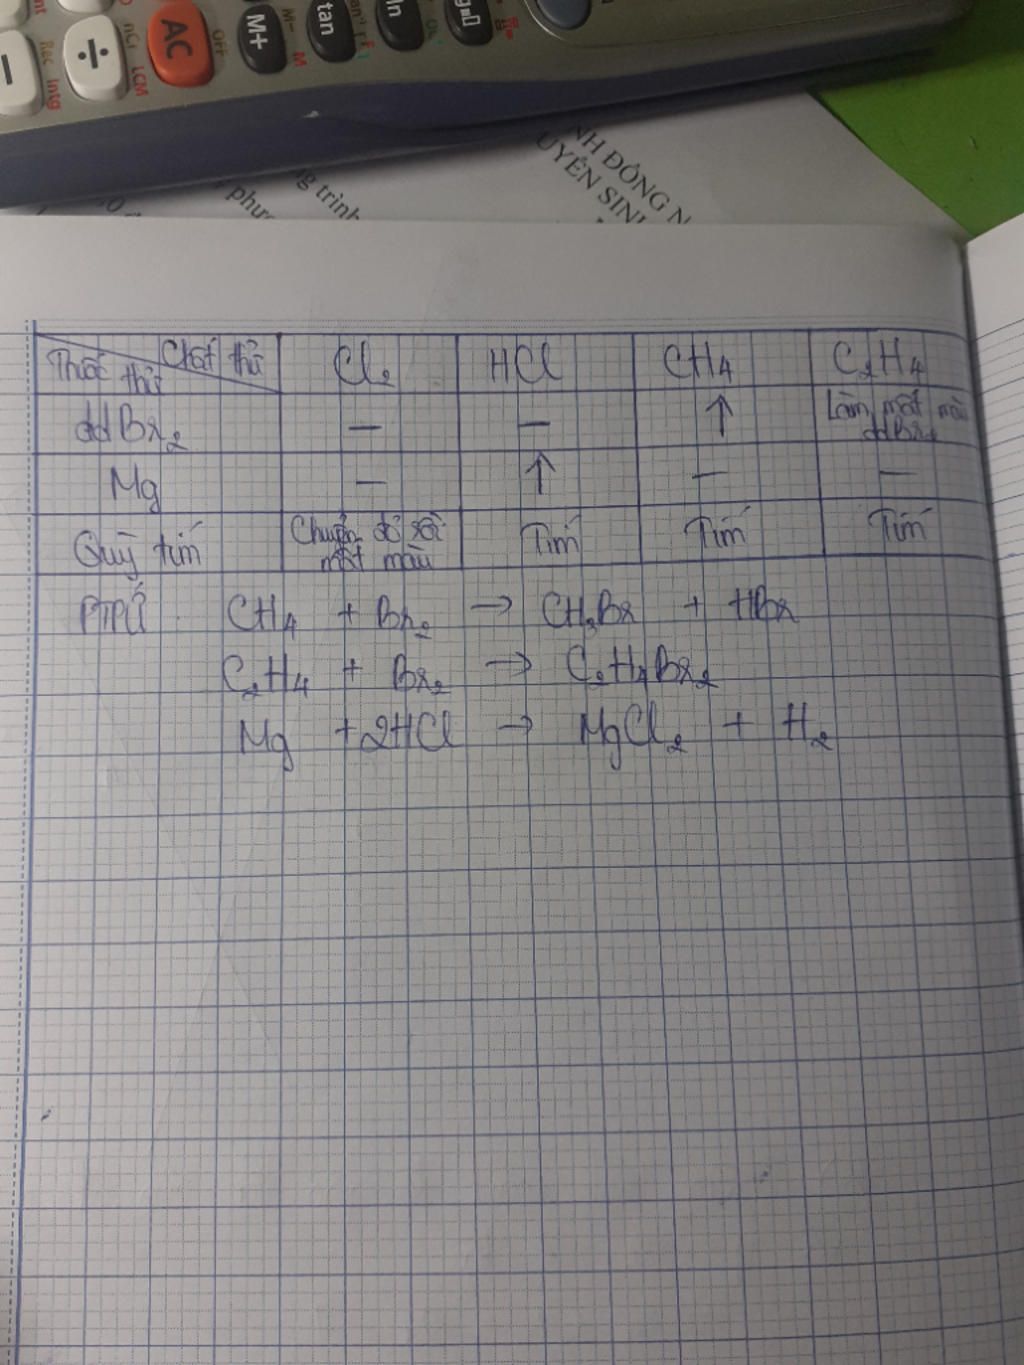 Rec Intg
nCr LCM
÷
AC
OFF
M+
M- M
tan
ln
NH ĐỒNG N
UYÊN SINH
ng trình
phươ
Thuốc thử Chất thử Cl₂ HCl CH₄ C₂H₄
dd Br₂ — — ↑ Làm mất màu dd Br₂
Mg — ↑ — —
Quỳ tím Chuyển đỏ rồi mất màu Tím Tím Tím
PTPỨ CH₄ + Br₂ → CH₃Br + HBr
C₂H₄ + Br₂ → C₂H₄Br₂
Mg + 2HCl → MgCl₂ + H₂